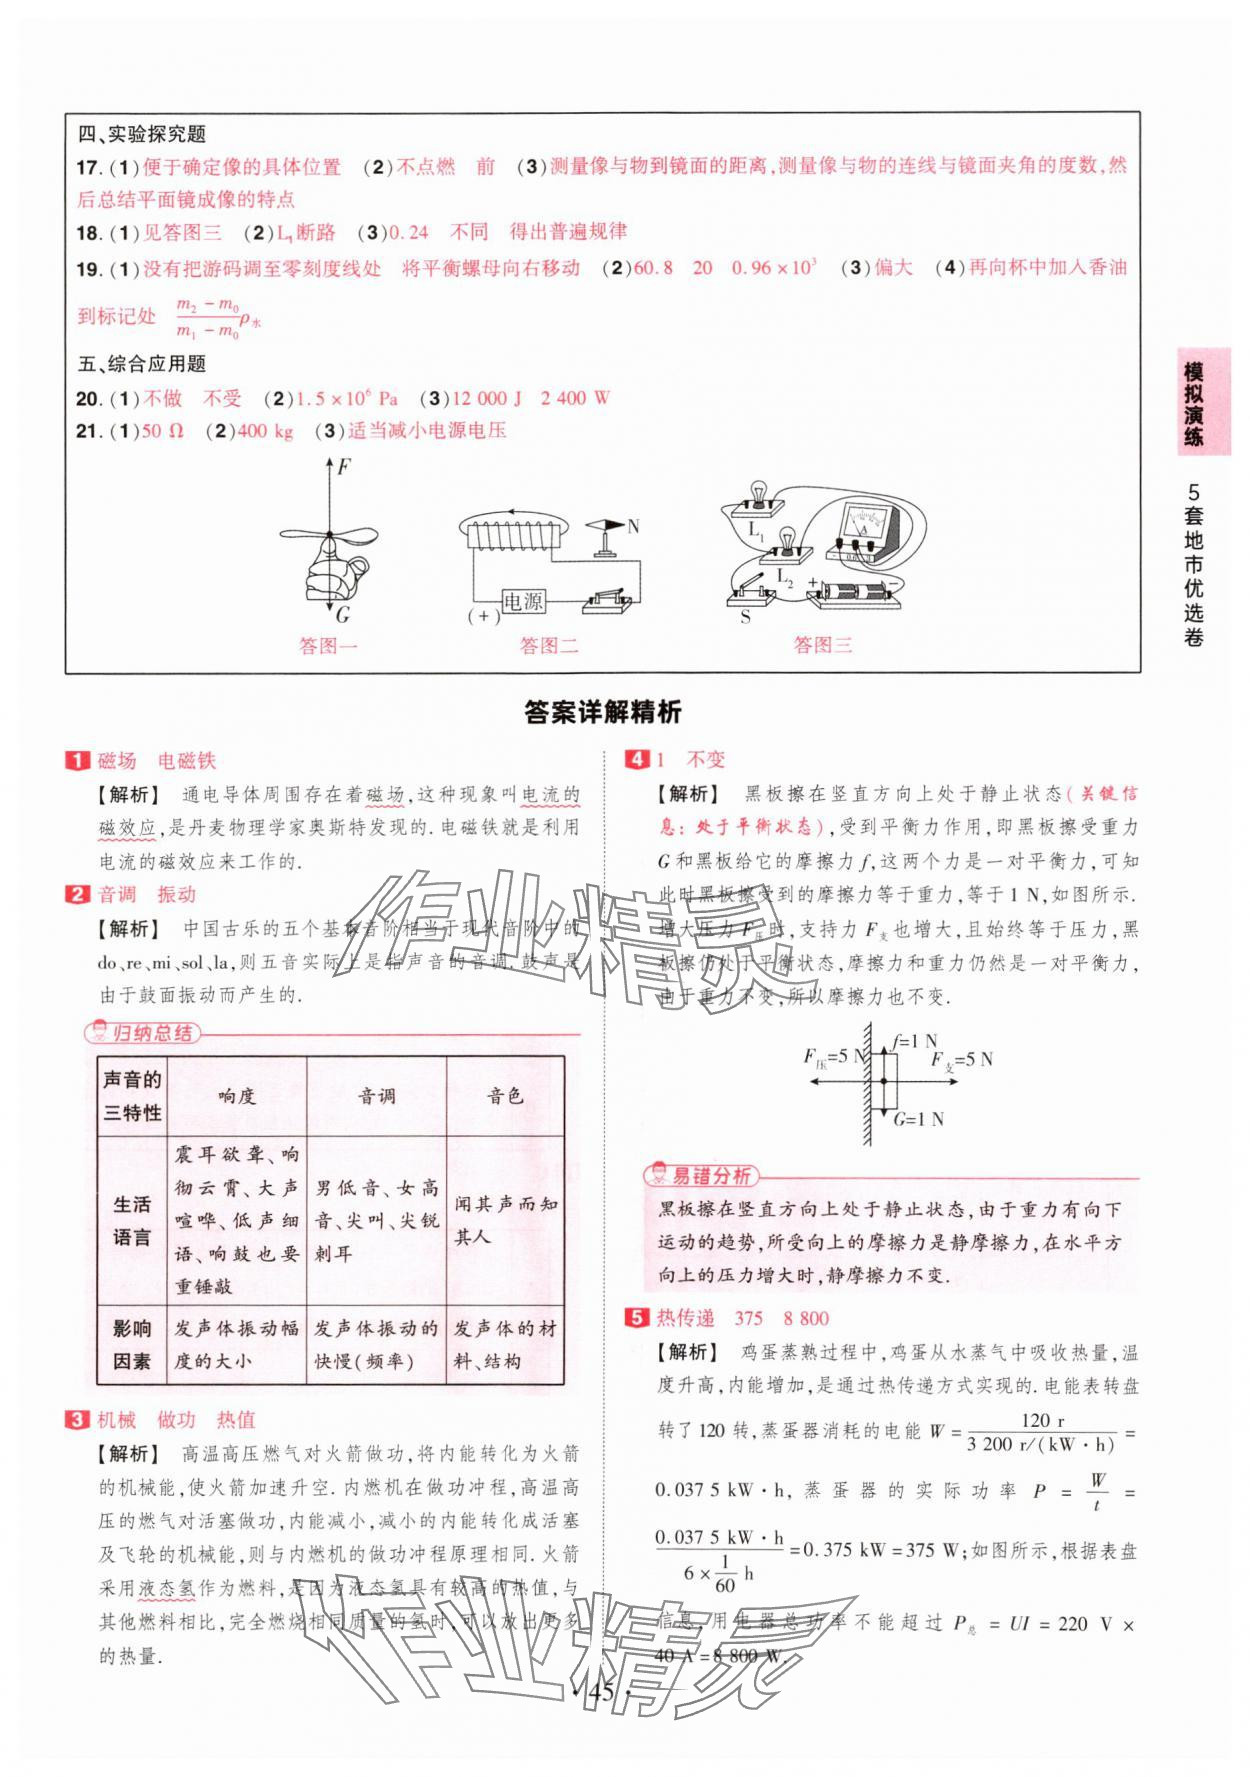 四、实验探究题
17. (1)便于确定像的具体位置 (2)不点燃 前 (3)测量像与物到镜面的距离,测量像与物的连线与镜面夹角的度数,然
后总结平面镜成像的特点
18. (1)见答图三 (2)L₁断路 (3)0.24 不同 得出普遍规律
19. (1)没有把游码调至零刻度线处 将平衡螺母向右移动 (2)60.8 20 0.96×10³ (3)偏大 (4)再向杯中加入香油
到标记处 (m₂-m₀)/(m₁-m₀)ρ水
五、综合应用题
20. (1)不做 不受 (2)1.5×10⁶ Pa (3)12 000 J 2 400 W
21. (1)50 Ω (2)400 kg (3)适当减小电源电压
F
G
答图一
N
(+)
电源
答图二
L₁
L₂
A
S
+
-
答图三
模拟演练
5套地市优选卷
答案详解精析
1 磁场 电磁铁
【解析】 通电导体周围存在着磁场,这种现象叫电流的
磁效应,是丹麦物理学家奥斯特发现的.电磁铁就是利用
电流的磁效应来工作的.
2 音调 振动
【解析】 中国古乐的五个基本音阶相当于现代音阶中的
do、re、mi、sol、la,则五音实际上是指声音的音调.鼓声是
由于鼓面振动而产生的.
归纳总结
声音的三特性 响度 音调 音色
生活语言 震耳欲聋、响彻云霄、大声喧哗、低声细语、响鼓也要重锤敲 男低音、女高音、尖叫、尖锐刺耳 闻其声而知其人
影响因素 发声体振动幅度的大小 发声体振动的快慢(频率) 发声体的材料、结构
3 机械 做功 热值
【解析】 高温高压燃气对火箭做功,将内能转化为火箭
的机械能,使火箭加速升空.内燃机在做功冲程,高温高
压的燃气对活塞做功,内能减小,减小的内能转化成活塞
及飞轮的机械能,则与内燃机的做功冲程原理相同.火箭
采用液态氢作为燃料,是因为液态氢具有较高的热值,与
其他燃料相比,完全燃烧相同质量的氢时,可以放出更多
的热量.
4 1 不变
【解析】 黑板擦在竖直方向上处于静止状态(关键信
息:处于平衡状态),受到平衡力作用,即黑板擦受重力
G和黑板给它的摩擦力f,这两个力是一对平衡力,可知
此时黑板擦受到的摩擦力等于重力,等于1 N,如图所示.
增大压力F压时,支持力F支也增大,且始终等于压力,黑
板擦仍处于平衡状态,摩擦力和重力仍然是一对平衡力,
由于重力不变,所以摩擦力也不变.
f=1 N
F压=5 N
F支=5 N
G=1 N
易错分析
黑板擦在竖直方向上处于静止状态,由于重力有向下
运动的趋势,所受向上的摩擦力是静摩擦力,在水平方
向上的压力增大时,静摩擦力不变.
5 热传递 375 8 800
【解析】 鸡蛋蒸熟过程中,鸡蛋从水蒸气中吸收热量,温
度升高,内能增加,是通过热传递方式实现的.电能表转盘
转了120转,蒸蛋器消耗的电能 W=120 r/3 200 r/(kW·h)=
0.037 5 kW·h,蒸蛋器的实际功率 P=W/t=
0.037 5 kW·h/(6×1/60 h)=0.375 kW=375 W;如图所示,根据表盘
信息,用电器总功率不能超过 P总=UI=220 V×
40 A=8 800 W.
作业精灵
作业精灵
·45·